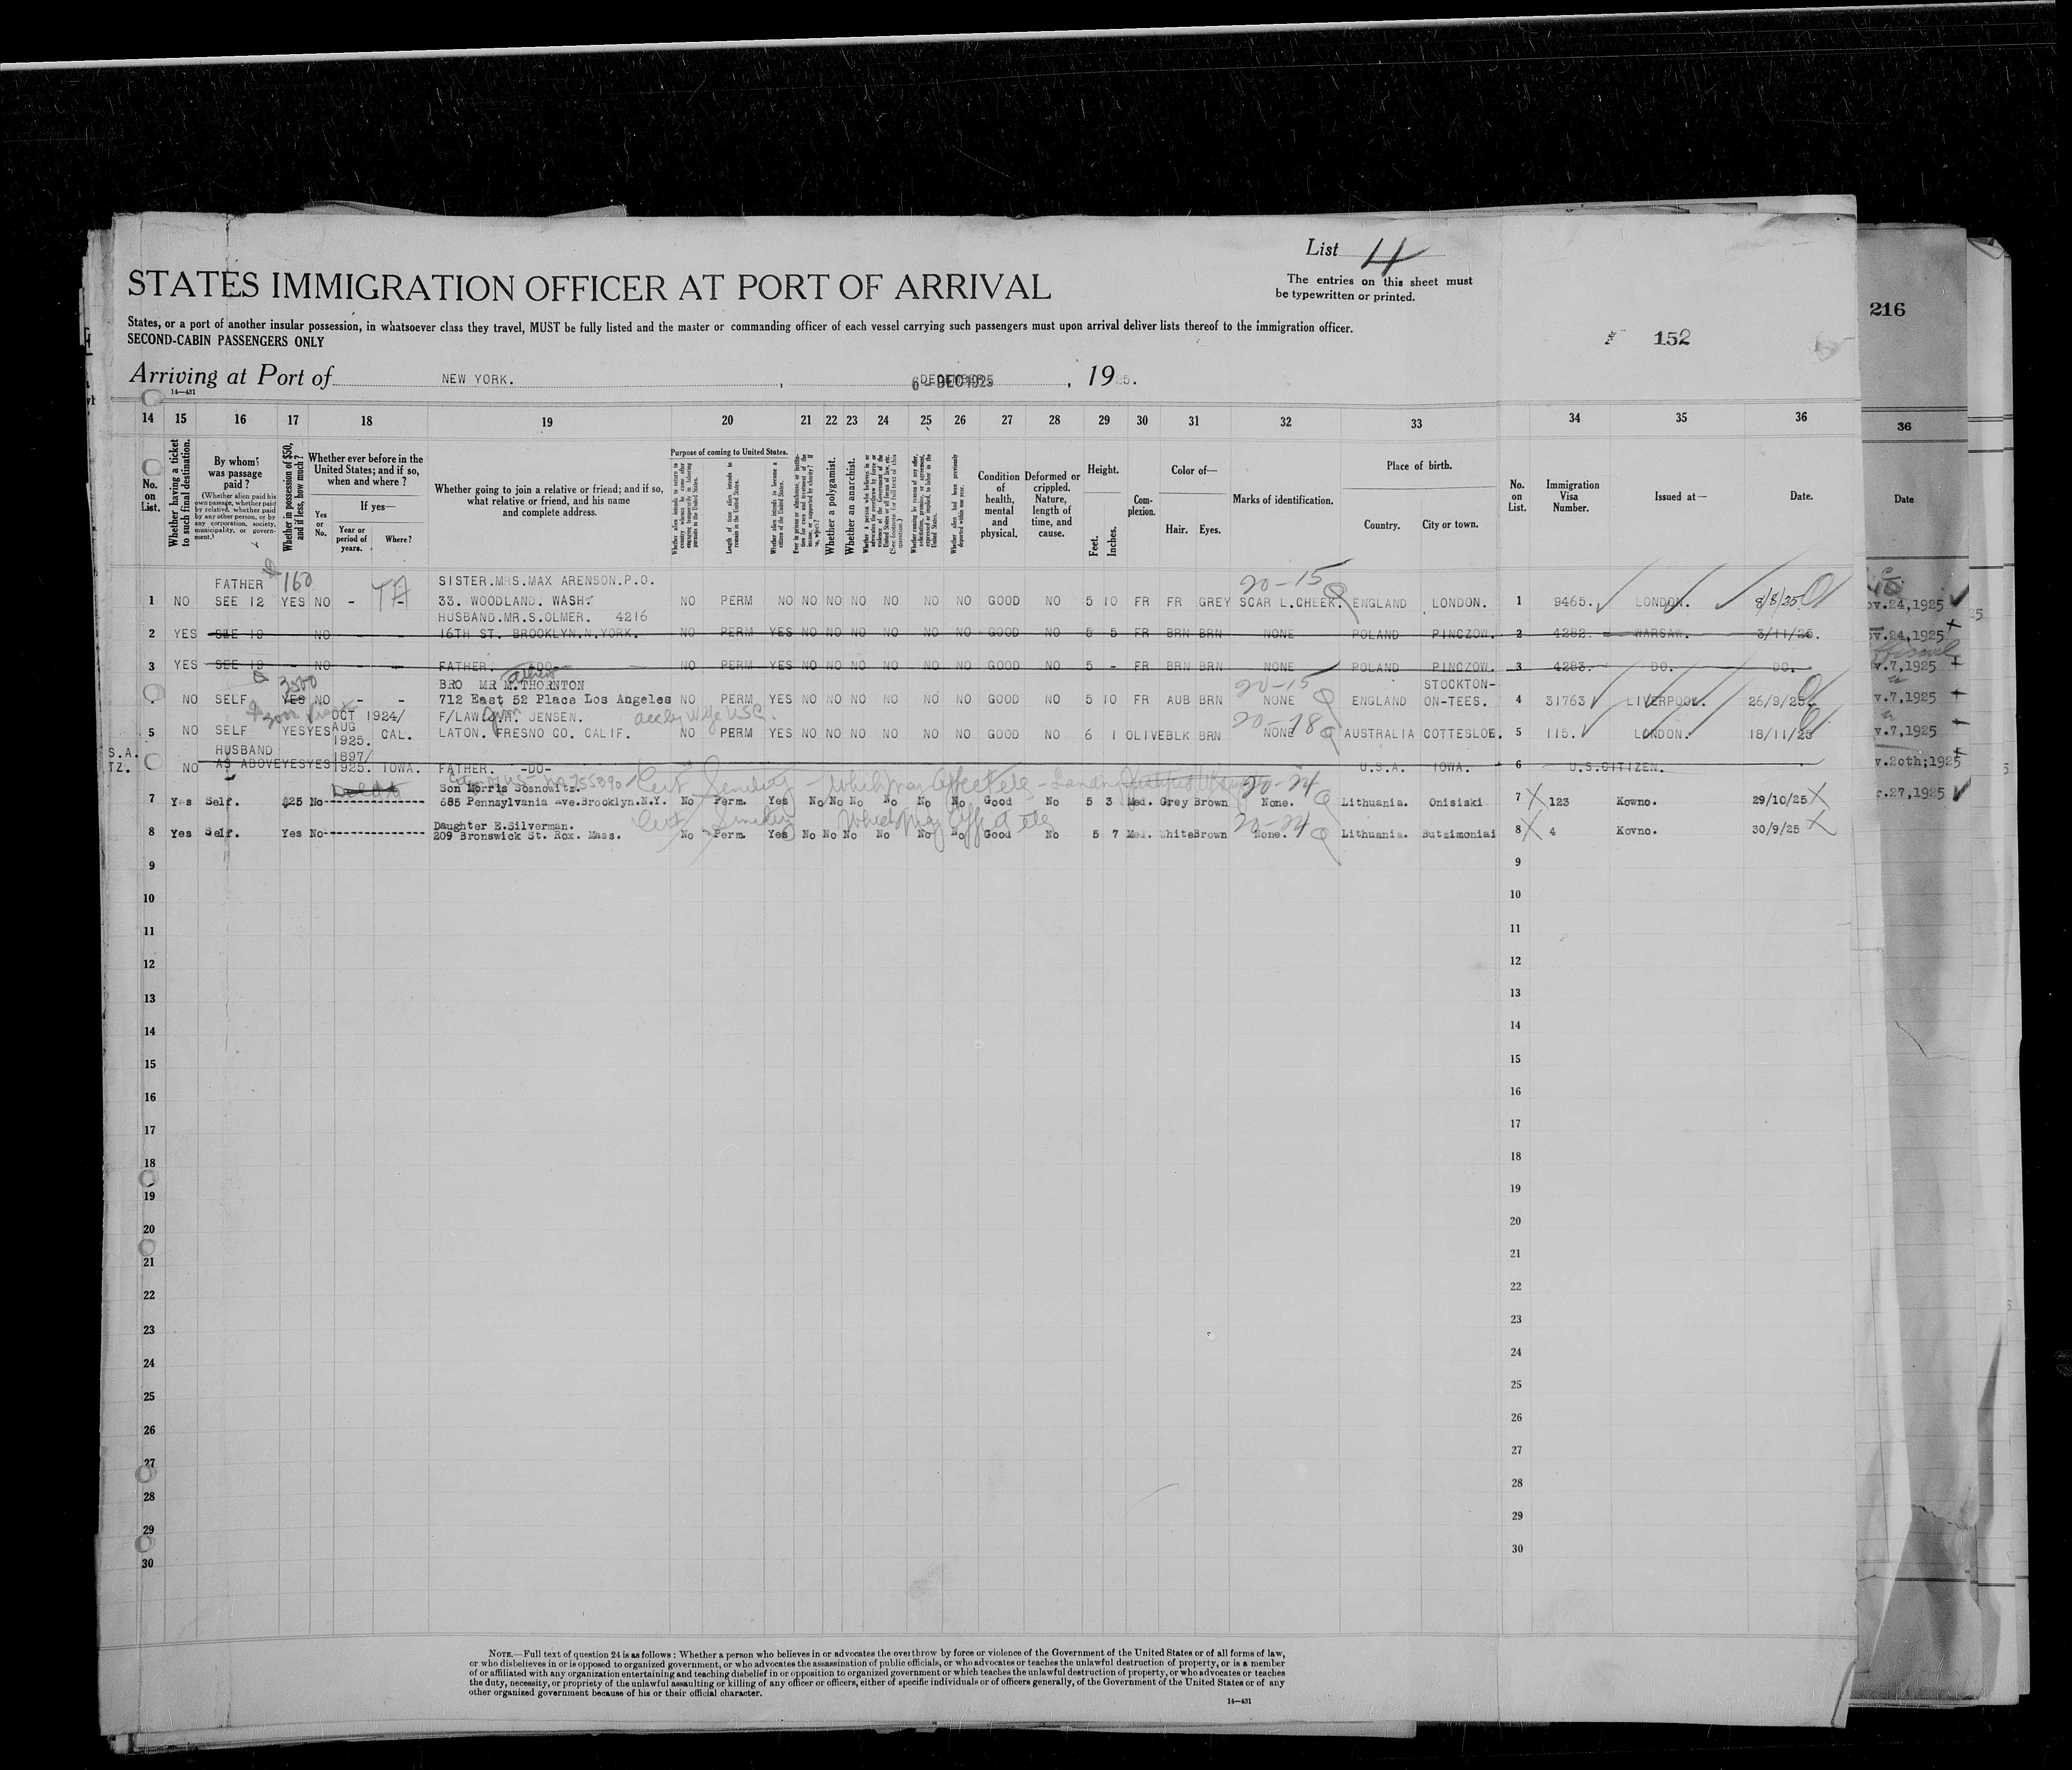 List 4
The entries on this sheet must
be typewritten or printed.
STATES IMMIGRATION OFFICER AT PORT OF ARRIVAL
States, or a port of another insular possession, in whatsoever class they travel, MUST be fully listed and the master or commanding officer of each vessel carrying such passengers must upon arrival deliver lists thereof to the immigration officer.
SECOND-CABIN PASSENGERS ONLY
152
216
Arriving at Port of NEW YORK. , 6 - DEC 1925 , 1925.
14—431
14 15 16 17 18 19 20 21 22 23 24 25 26 27 28 29 30 31 32 33 34 35 36
36
No. on List.
Whether having a ticket to such final destination.
By whom was passage paid?
(Whether alien paid his own passage, whether paid by relative, whether paid by any other person, or by any corporation, society, municipality, or government.)
Whether in possession of $50, and if less, how much?
Whether ever before in the United States; and if so, when and where?
If yes—
Yes or No.
Year or period of years.
Where?
Whether going to join a relative or friend; and if so, what relative or friend, and his name and complete address.
Purpose of coming to United States.
Length of time alien intends to remain in the United States.
Whether alien intends to become a citizen of the United States.
Whether a polygamist.
Whether an anarchist.
Condition of health, mental and physical.
Deformed or crippled. Nature, length of time, and cause.
Height.
Feet.
Inches.
Complexion.
Color of—
Hair. Eyes.
Marks of identification.
Place of birth.
Country. City or town.
No. on List.
Immigration Visa Number.
Issued at—
Date.
Date
FATHER 160 SISTER.MRS.MAX ARENSON.P.O. 20-15
1 NO SEE 12 YES NO - - 33. WOODLAND. WASH. NO PERM NO NO NO NO NO NO NO GOOD NO 5 10 FR FR GREY SCAR L.CHEEK. ENGLAND LONDON. 1 9465. LONDON. 8/8/25
HUSBAND.MR.S.OLMER. 4216
2 YES SEE 19 - NO - - 16TH ST. BROOKLYN.N.YORK. NO PERM YES NO NO NO NO NO NO GOOD NO 5 5 FR BRN BRN NONE POLAND PINCZOW. 2 4282. WARSAW. 3/11/25.
3 YES SEE 19 - NO - - FATHER. -DO- NO PERM YES NO NO NO NO NO NO GOOD NO 5 - FR BRN BRN NONE POLAND PINCZOW. 3 4283. DO. DO.
3500 BRO MR M.THORNTON 20-15 STOCKTON-
NO SELF YES NO - - 712 East 52 Place Los Angeles NO PERM YES NO NO NO NO NO NO GOOD NO 5 10 FR AUB BRN NONE ENGLAND ON-TEES. 4 31763 LIVERPOOL. 26/9/25
OCT 1924/ F/LAW. JENSEN. 20-18
5 NO SELF YES YES AUG 1925. CAL. LATON. FRESNO CO. CALIF. NO PERM YES NO NO NO NO NO NO GOOD NO 6 1 OLIVE BLK BRN NONE AUSTRALIA COTTESLOE. 5 115. LONDON. 18/11/25
S.A. HUSBAND 1897/
TZ. NO AS ABOVE YES YES 1925. IOWA. FATHER. -DO- U.S.A. IOWA. 6 U.S.CITIZEN.
Son Morris Sosnowitz. 20-24
7 Yes Self. $25 No------------- 685 Pennsylvania Ave.Brooklyn.N.Y. No Perm. Yes No No No No No No Good No 5 3 Med. Grey Brown None. Lithuania. Onisiski 7 123 Kowno. 29/10/25
Daughter E.Silverman. 20-24
8 Yes Self. Yes No------------- 209 Bronswick St. Rox. Mass. No Perm. Yes No No No No No No Good No 5 7 Med. White Brown None. Lithuania. Butzimoniai 8 4 Kovno. 30/9/25
ov.24,1925
ov.24,1925
v.7,1925
v.7,1925
v.7,1925
v.20th;1925
r.27,1925
9 9
10 10
11 11
12 12
13 13
14 14
15 15
16 16
17 17
18 18
19 19
20 20
21 21
22 22
23 23
24 24
25 25
26 26
27 27
28 28
29 29
30 30
NOTE.—Full text of question 24 is as follows: Whether a person who believes in or advocates the overthrow by force or violence of the Government of the United States or of all forms of law,
or who disbelieves in or is opposed to organized government, or who advocates the assassination of public officials, or who advocates or teaches the unlawful destruction of property, or is a member
of or affiliated with any organization entertaining and teaching disbelief in or opposition to organized government or which teaches the unlawful destruction of property, or who advocates or teaches
the duty, necessity, or propriety of the unlawful assaulting or killing of any officer or officers, either of specific individuals or of officers generally, of the Government of the United States or of any
other organized government because of his or their official character.
14—431